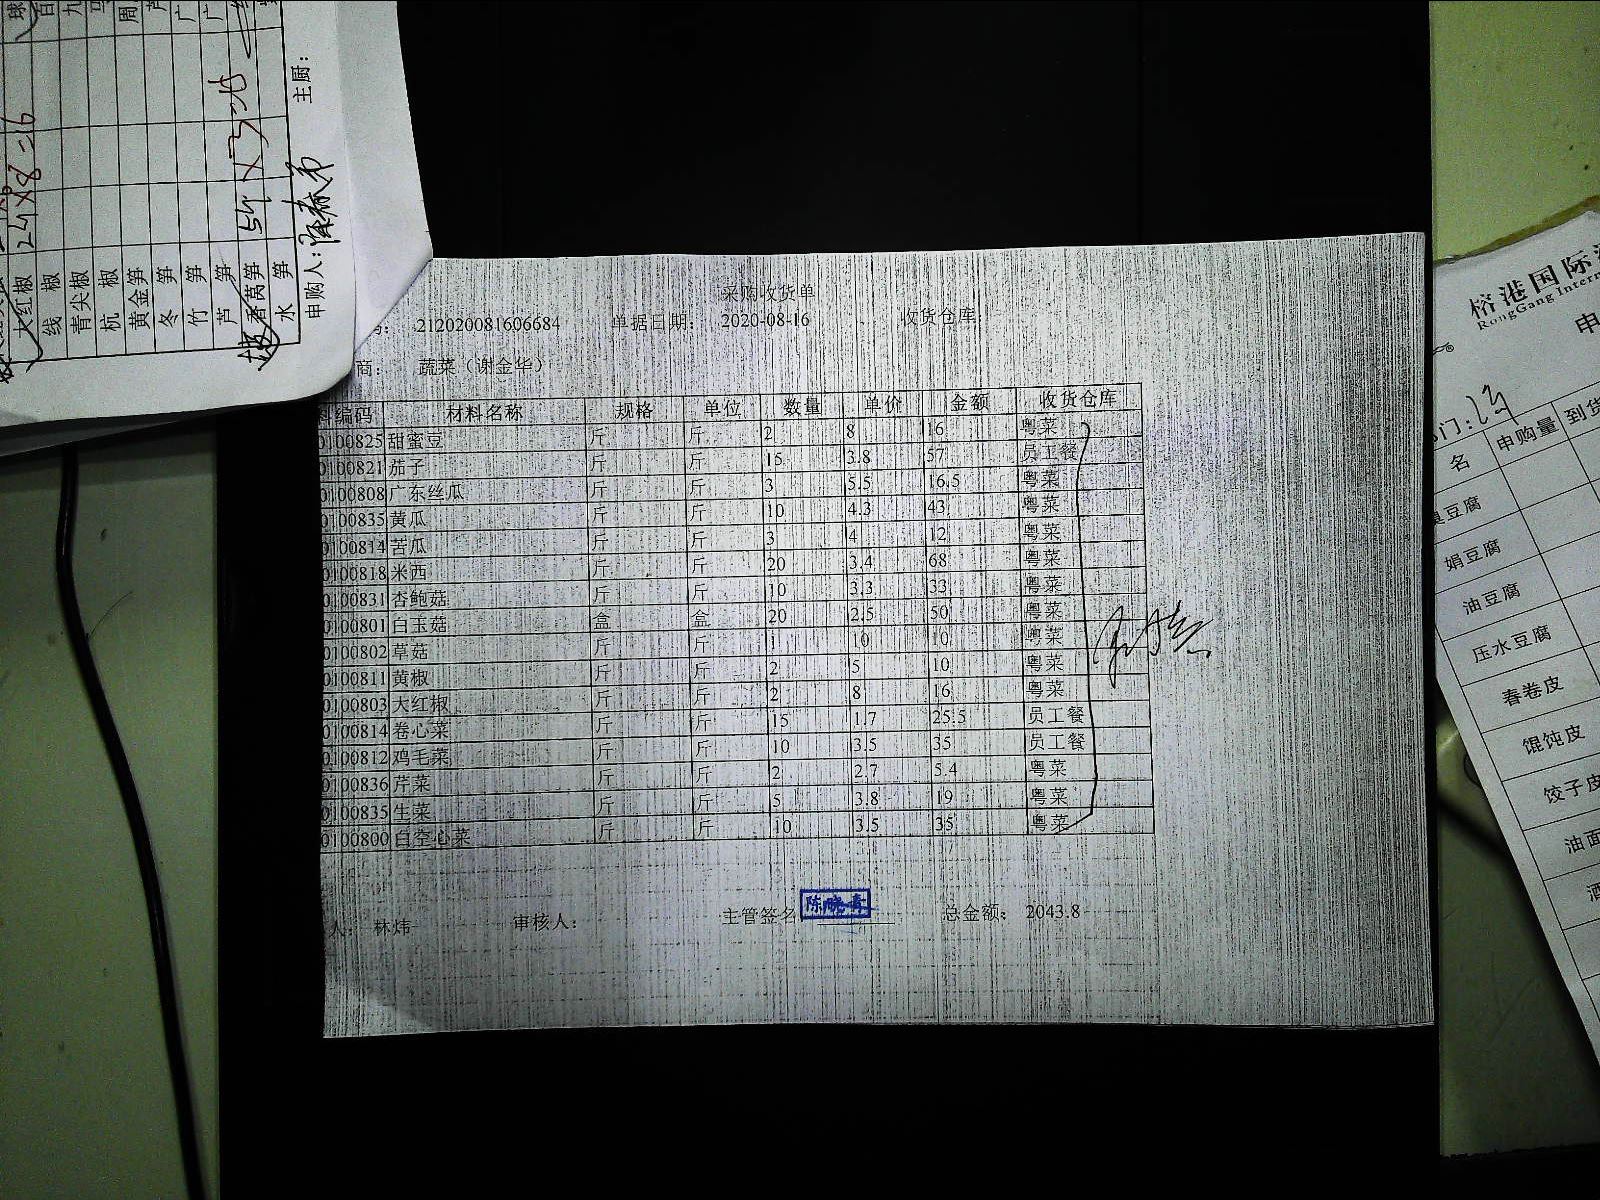 采购收货单
212020081606684 单据日期: 2020-08-16 收货仓库:
商: 蔬菜（谢金华）
料编码 材料名称 规格 单位 数量 单价 金额 收货仓库
0100825 甜蜜豆 斤 斤 2 8 16 粤菜
0100821 茄子 斤 斤 15 3.8 57 员工餐
0100808 广东丝瓜 斤 斤 3 5.5 16.5 粤菜
0100835 黄瓜 斤 斤 10 4.3 43 粤菜
0100814 苦瓜 斤 斤 3 4 12 粤菜
0100818 米西 斤 斤 20 3.4 68 粤菜
0100831 杏鲍菇 斤 斤 10 3.3 33 粤菜
0100801 白玉菇 盒 盒 20 2.5 50 粤菜
0100802 草菇 斤 斤 1 10 10 粤菜
0100811 黄椒 斤 斤 2 5 10 粤菜
0100803 大红椒 斤 斤 2 8 16 粤菜
0100814 卷心菜 斤 斤 15 1.7 25.5 员工餐
0100812 鸡毛菜 斤 斤 10 3.5 35 员工餐
0100836 芹菜 斤 斤 2 2.7 5.4 粤菜
0100835 生菜 斤 斤 5 3.8 19 粤菜
0100800 白空心菜 斤 斤 10 3.5 35 粤菜
人: 林炜 审核人: 主管签名 总金额: 2043.8
大红椒
线椒
青尖椒
杭椒
黄金笋
冬笋
竹笋
芦笋
香莴笋
水笋
申购人: 主厨:
榕港国际
RongGang Intern
申
门:
名 申购量 到货
臭豆腐
娟豆腐
油豆腐
压水豆腐
春卷皮
馄饨皮
饺子皮
油面
酒